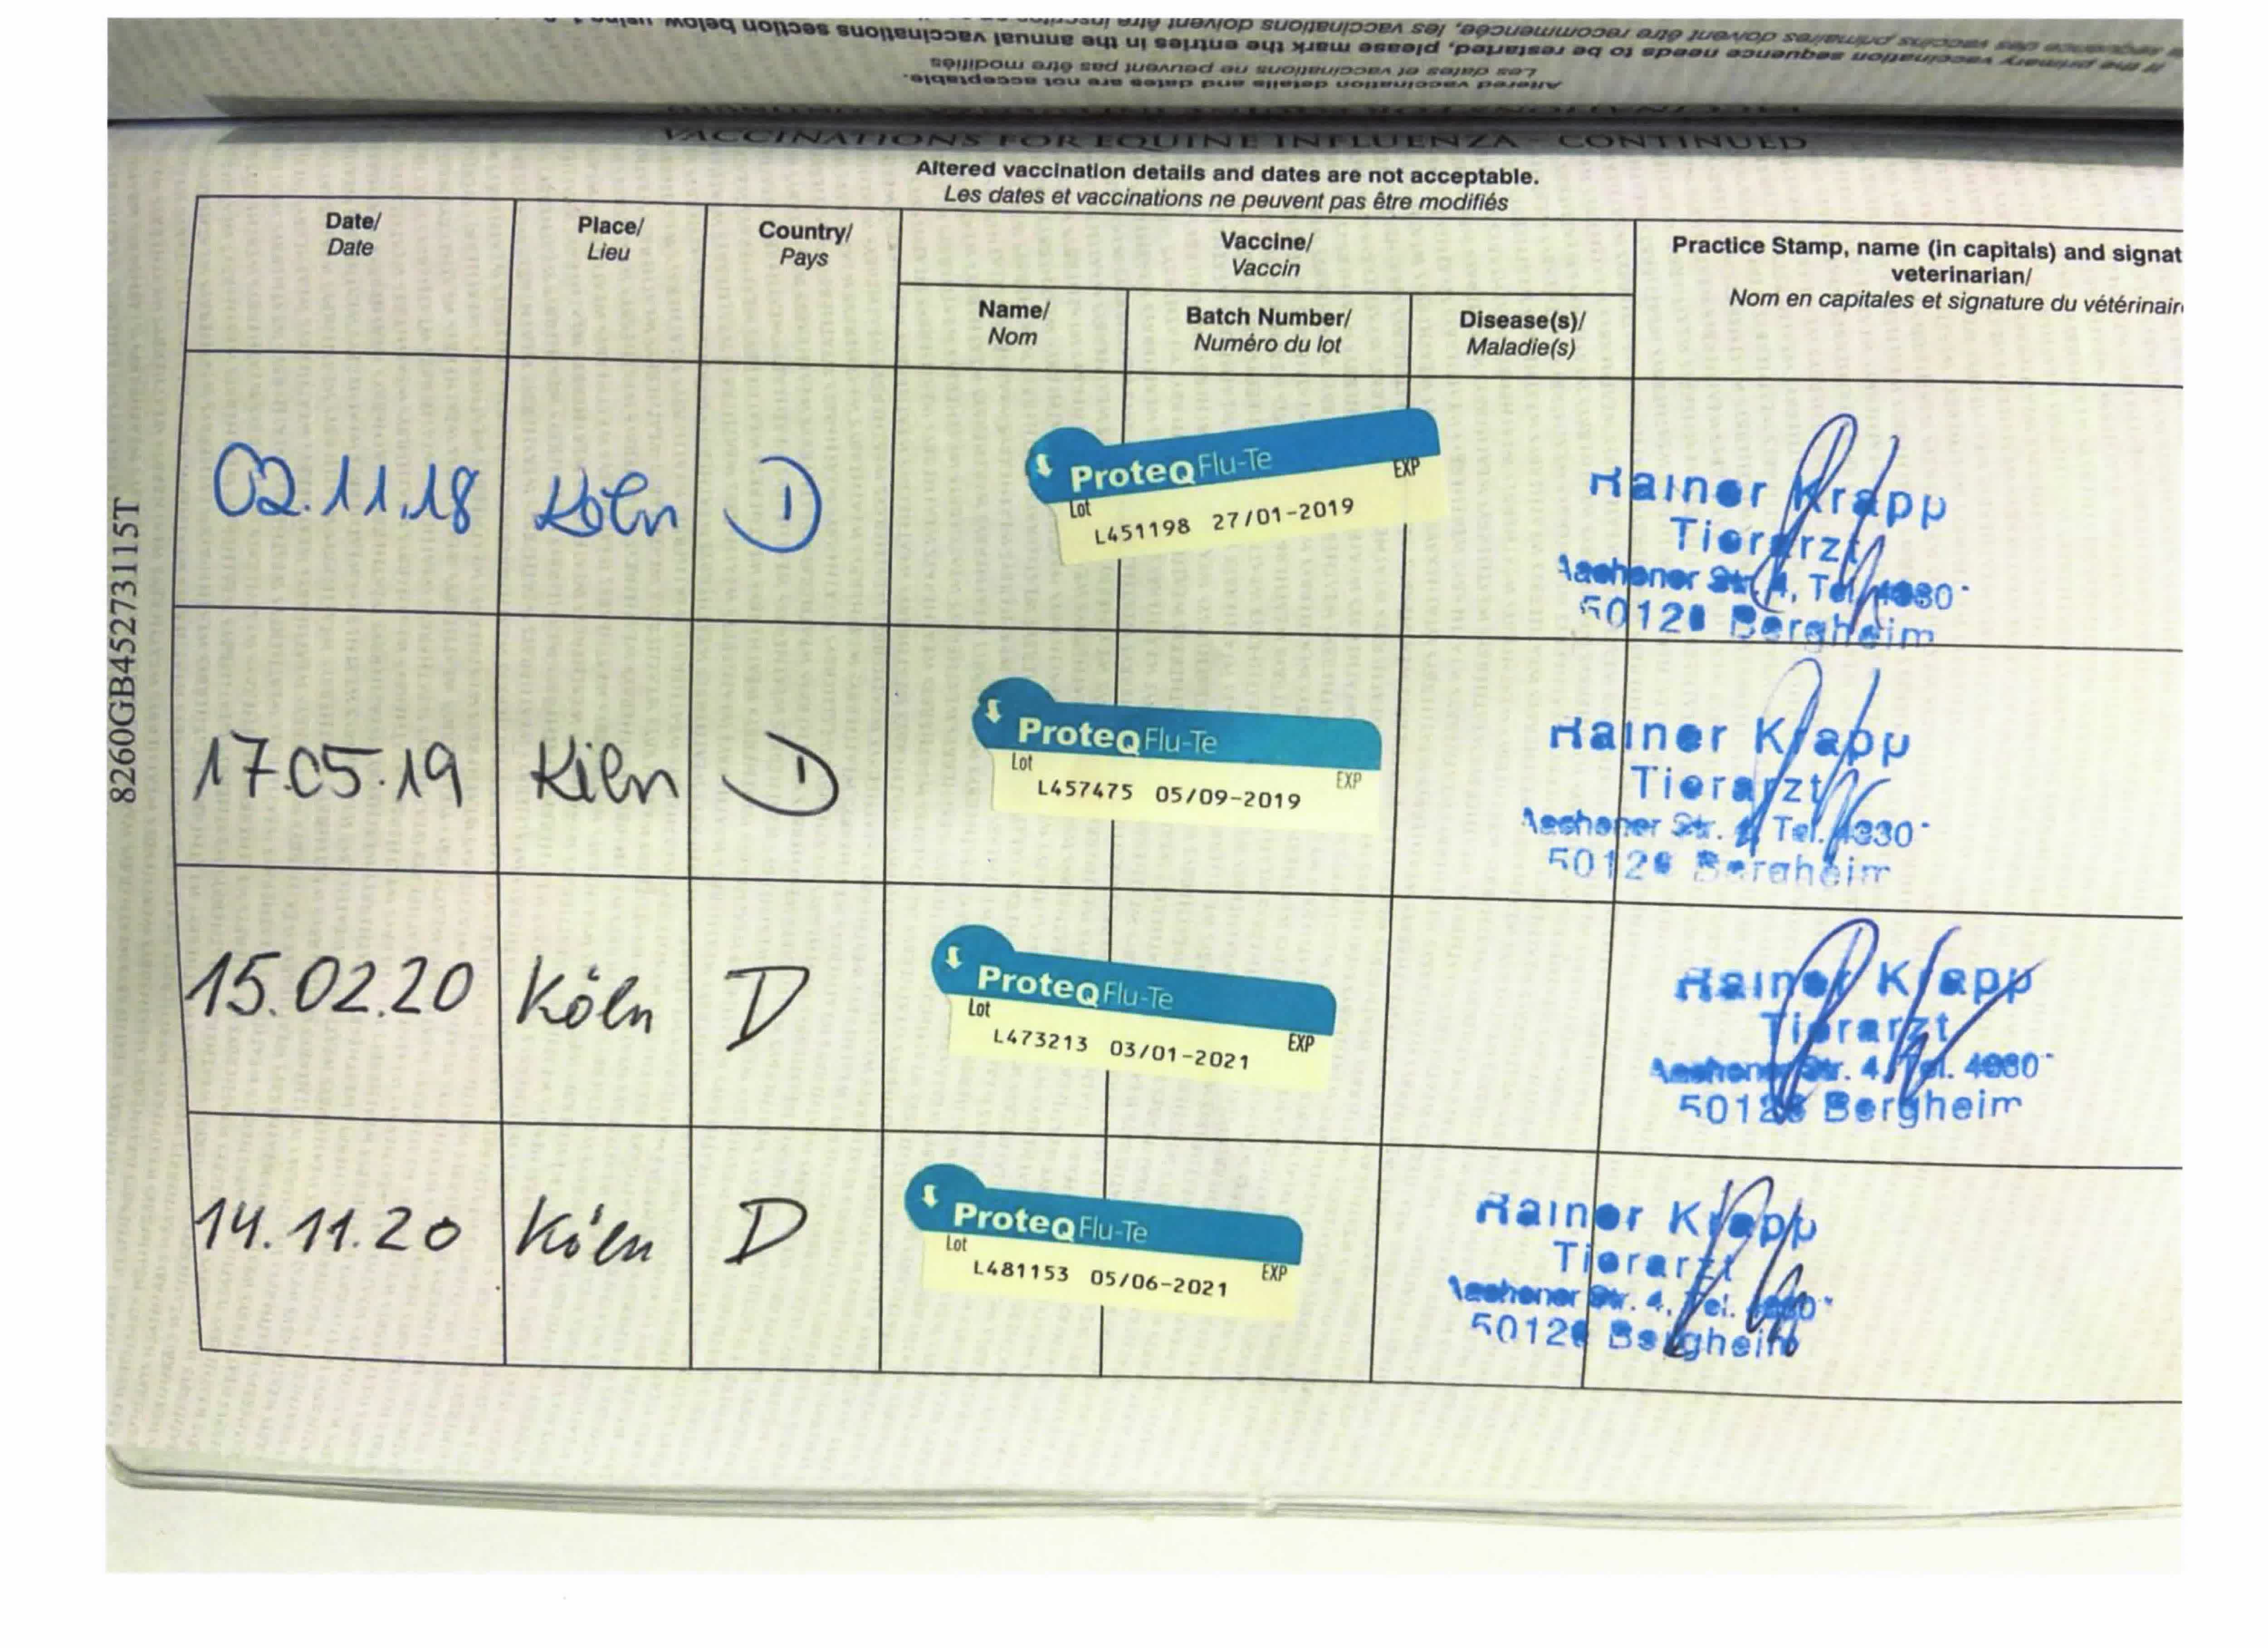 If the primary vaccination sequence needs to be restarted, please mark the entries in the annual vaccinations section below, using
Les dates et vaccinations ne peuvent pas être modifiés
Altered vaccination details and dates are not acceptable.
VACCINATIONS FOR EQUINE INFLUENZA - CONTINUED
Altered vaccination details and dates are not acceptable.
Les dates et vaccinations ne peuvent pas être modifiés
Date/
Date
Place/
Lieu
Country/
Pays
Vaccine/
Vaccin
Practice Stamp, name (in capitals) and signat
veterinarian/
Nom en capitales et signature du vétérinair
Name/
Nom
Batch Number/
Numéro du lot
Disease(s)/
Maladie(s)
02.11.18 Köln D
ProteqFlu-Te
Lot EXP
L451198 27/01-2019
Rainer Krapp
Tierarzt
Aachener Str. 4, Tel.
Bergheim
17.05.19 Köln D
ProteqFlu-Te
Lot EXP
L457475 05/09-2019
Rainer Krapp
Tierarzt
Aachener Str. 4, Tel.
Bergheim
15.02.20 Köln D
ProteqFlu-Te
Lot EXP
L473213 03/01-2021
Rainer Krapp
Tierarzt
Aachener Str. 4, Tel.
Bergheim
14.11.20 Köln D
ProteqFlu-Te
Lot EXP
L481153 05/06-2021
Rainer Krapp
Tierarzt
Aachener Str. 4, Tel.
Bergheim
8260GB45273115T